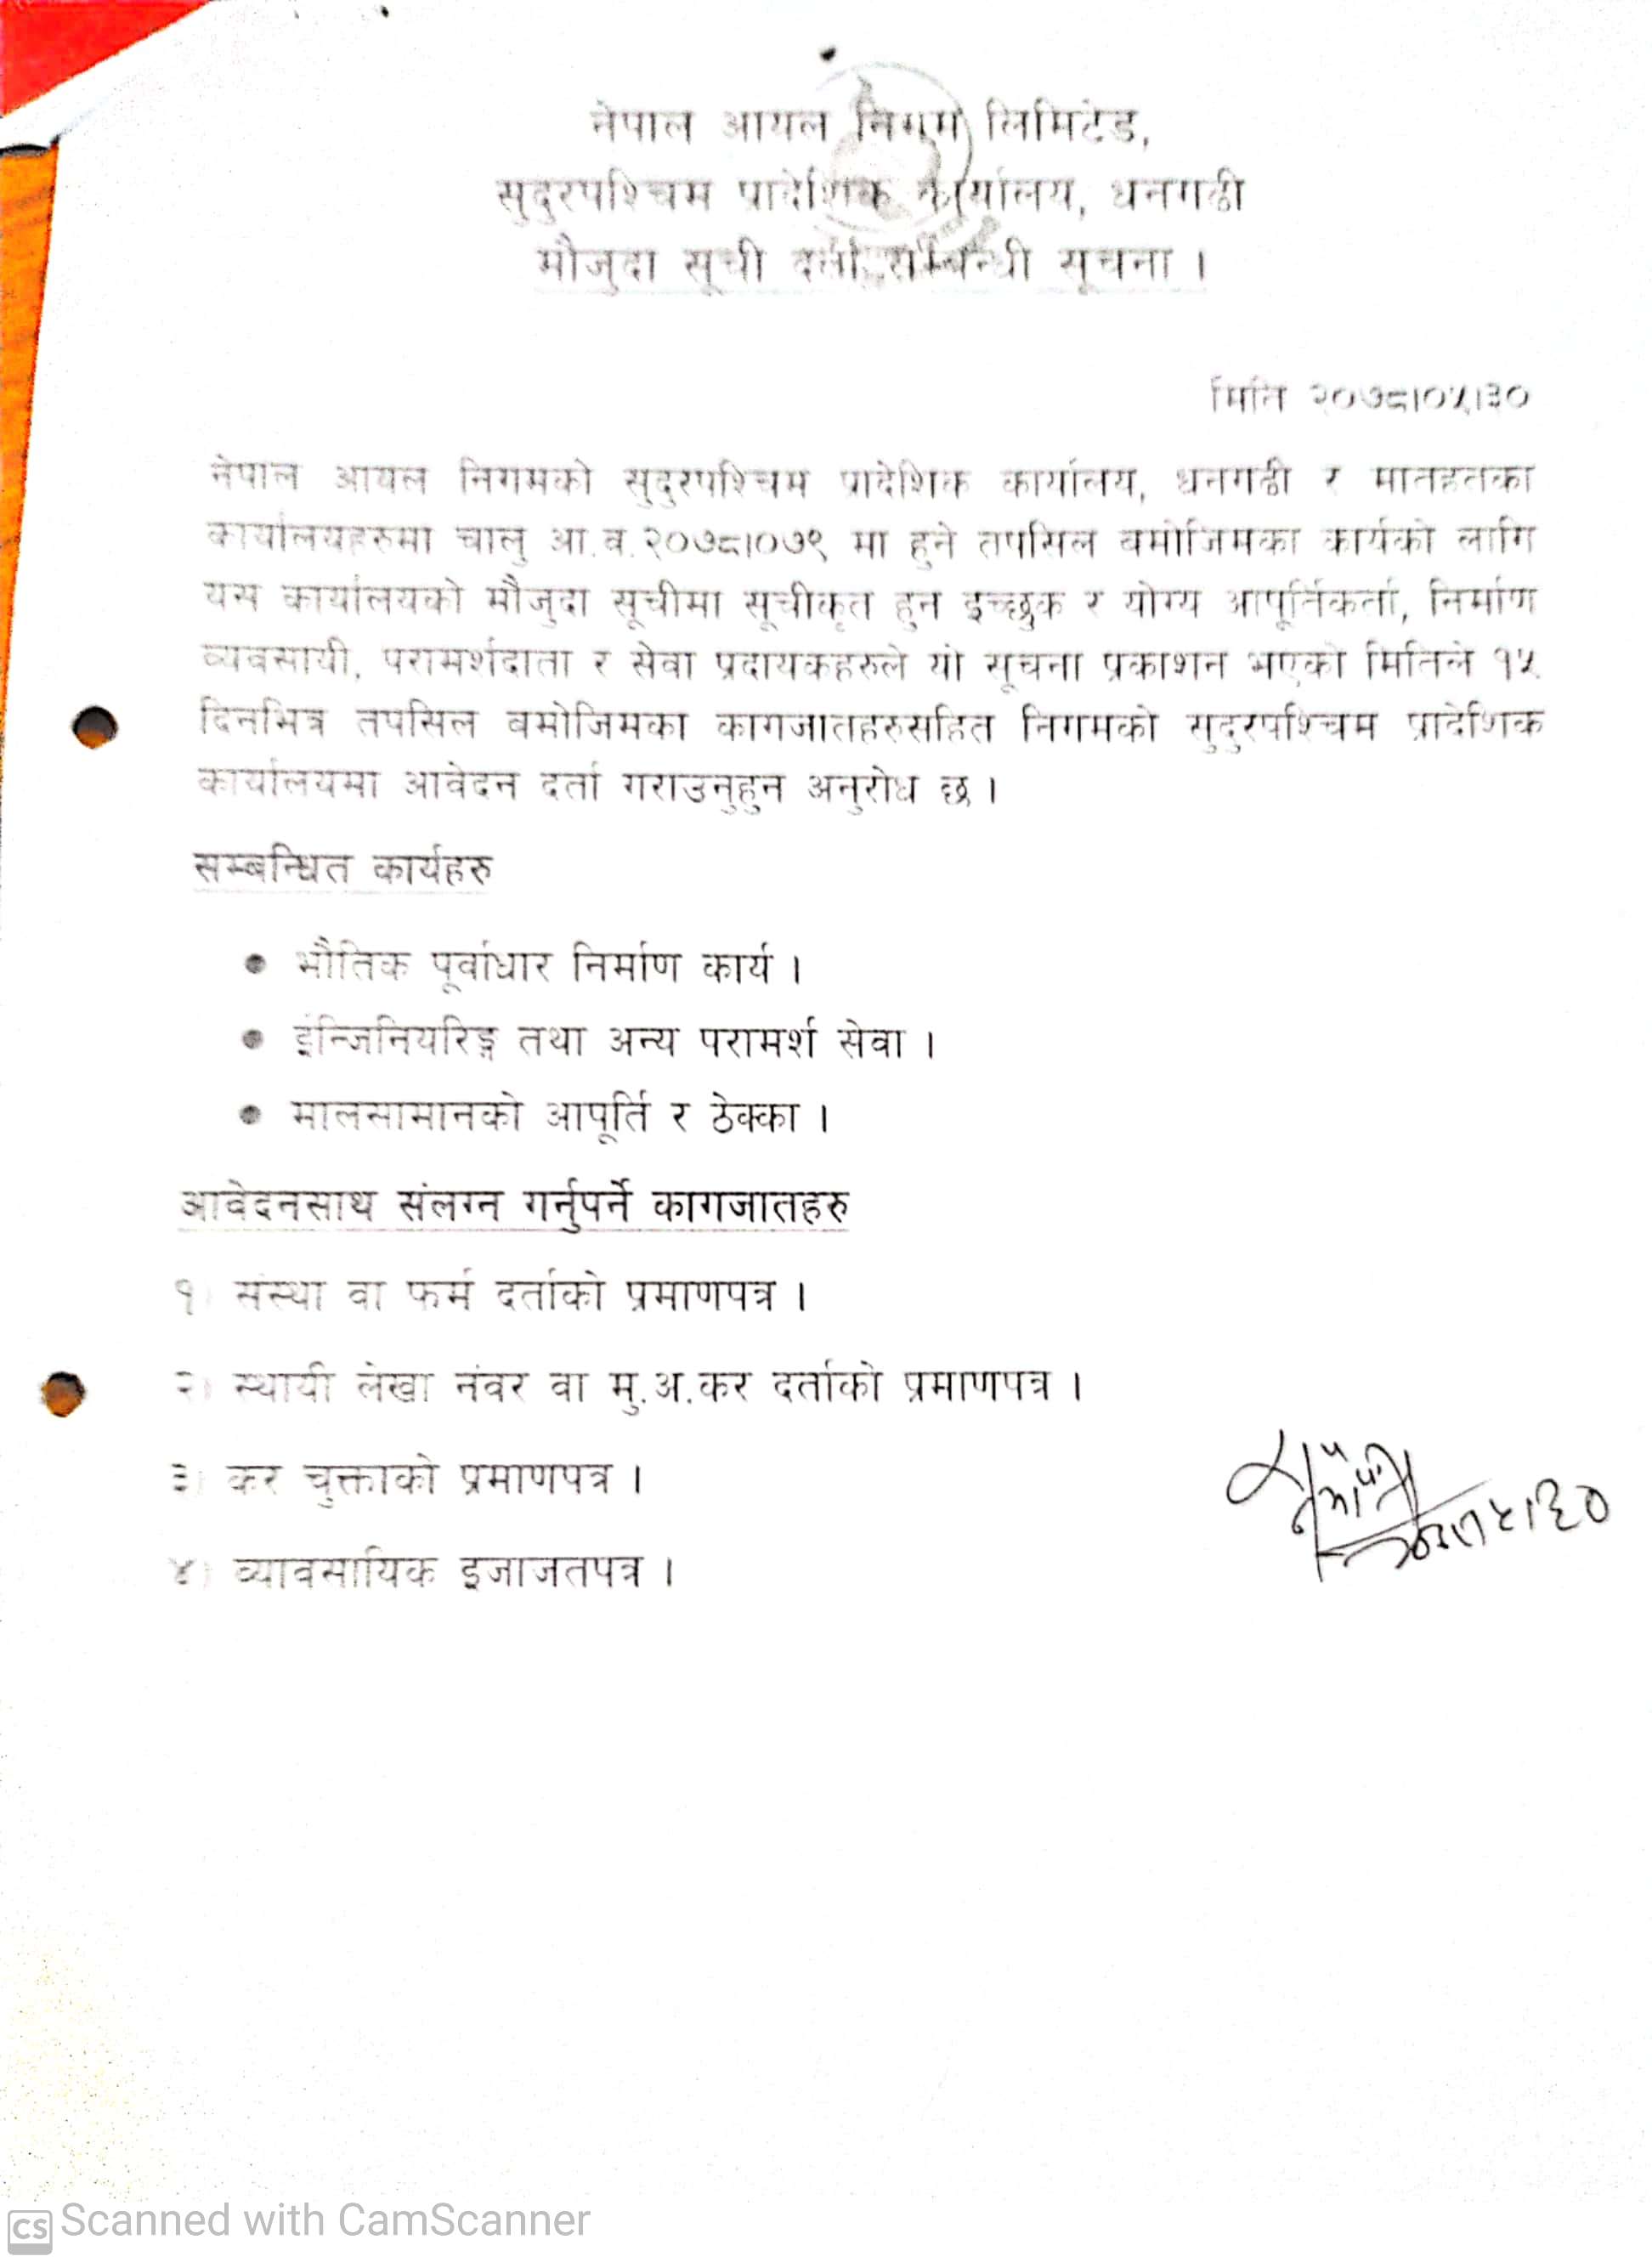 नेपाल आयल निगम लिमिटेड,
सुदुरपश्चिम प्रादेशिक कार्यालय, धनगढी
मौजुदा सूची दर्ता सम्बन्धी सूचना ।
मिति २०७८।०५।३०
नेपाल आयल निगमको सुदुरपश्चिम प्रादेशिक कार्यालय, धनगढी र मातहतका
कार्यालयहरुमा चालु आ.व.२०७८।०७९ मा हुने तपसिल बमोजिमका कार्यको लागि
यस कार्यालयको मौजुदा सूचीमा सूचीकृत हुन इच्छुक र योग्य आपूर्तिकर्ता, निर्माण
व्यवसायी, परामर्शदाता र सेवा प्रदायकहरुले यो सूचना प्रकाशन भएको मितिले १५
दिनभित्र तपसिल बमोजिमका कागजातहरुसहित निगमको सुदुरपश्चिम प्रादेशिक
कार्यालयमा आवेदन दर्ता गराउनुहुन अनुरोध छ ।
सम्बन्धित कार्यहरु
• भौतिक पूर्वाधार निर्माण कार्य ।
• इन्जिनियरिङ्ग तथा अन्य परामर्श सेवा ।
• मालसामानको आपूर्ति र ठेक्का ।
आवेदनसाथ संलग्न गर्नुपर्ने कागजातहरु
१) संस्था वा फर्म दर्ताको प्रमाणपत्र ।
२) स्थायी लेखा नंवर वा मु.अ.कर दर्ताको प्रमाणपत्र ।
३) कर चुक्ताको प्रमाणपत्र ।
४) व्यावसायिक इजाजतपत्र ।
CS Scanned with CamScanner